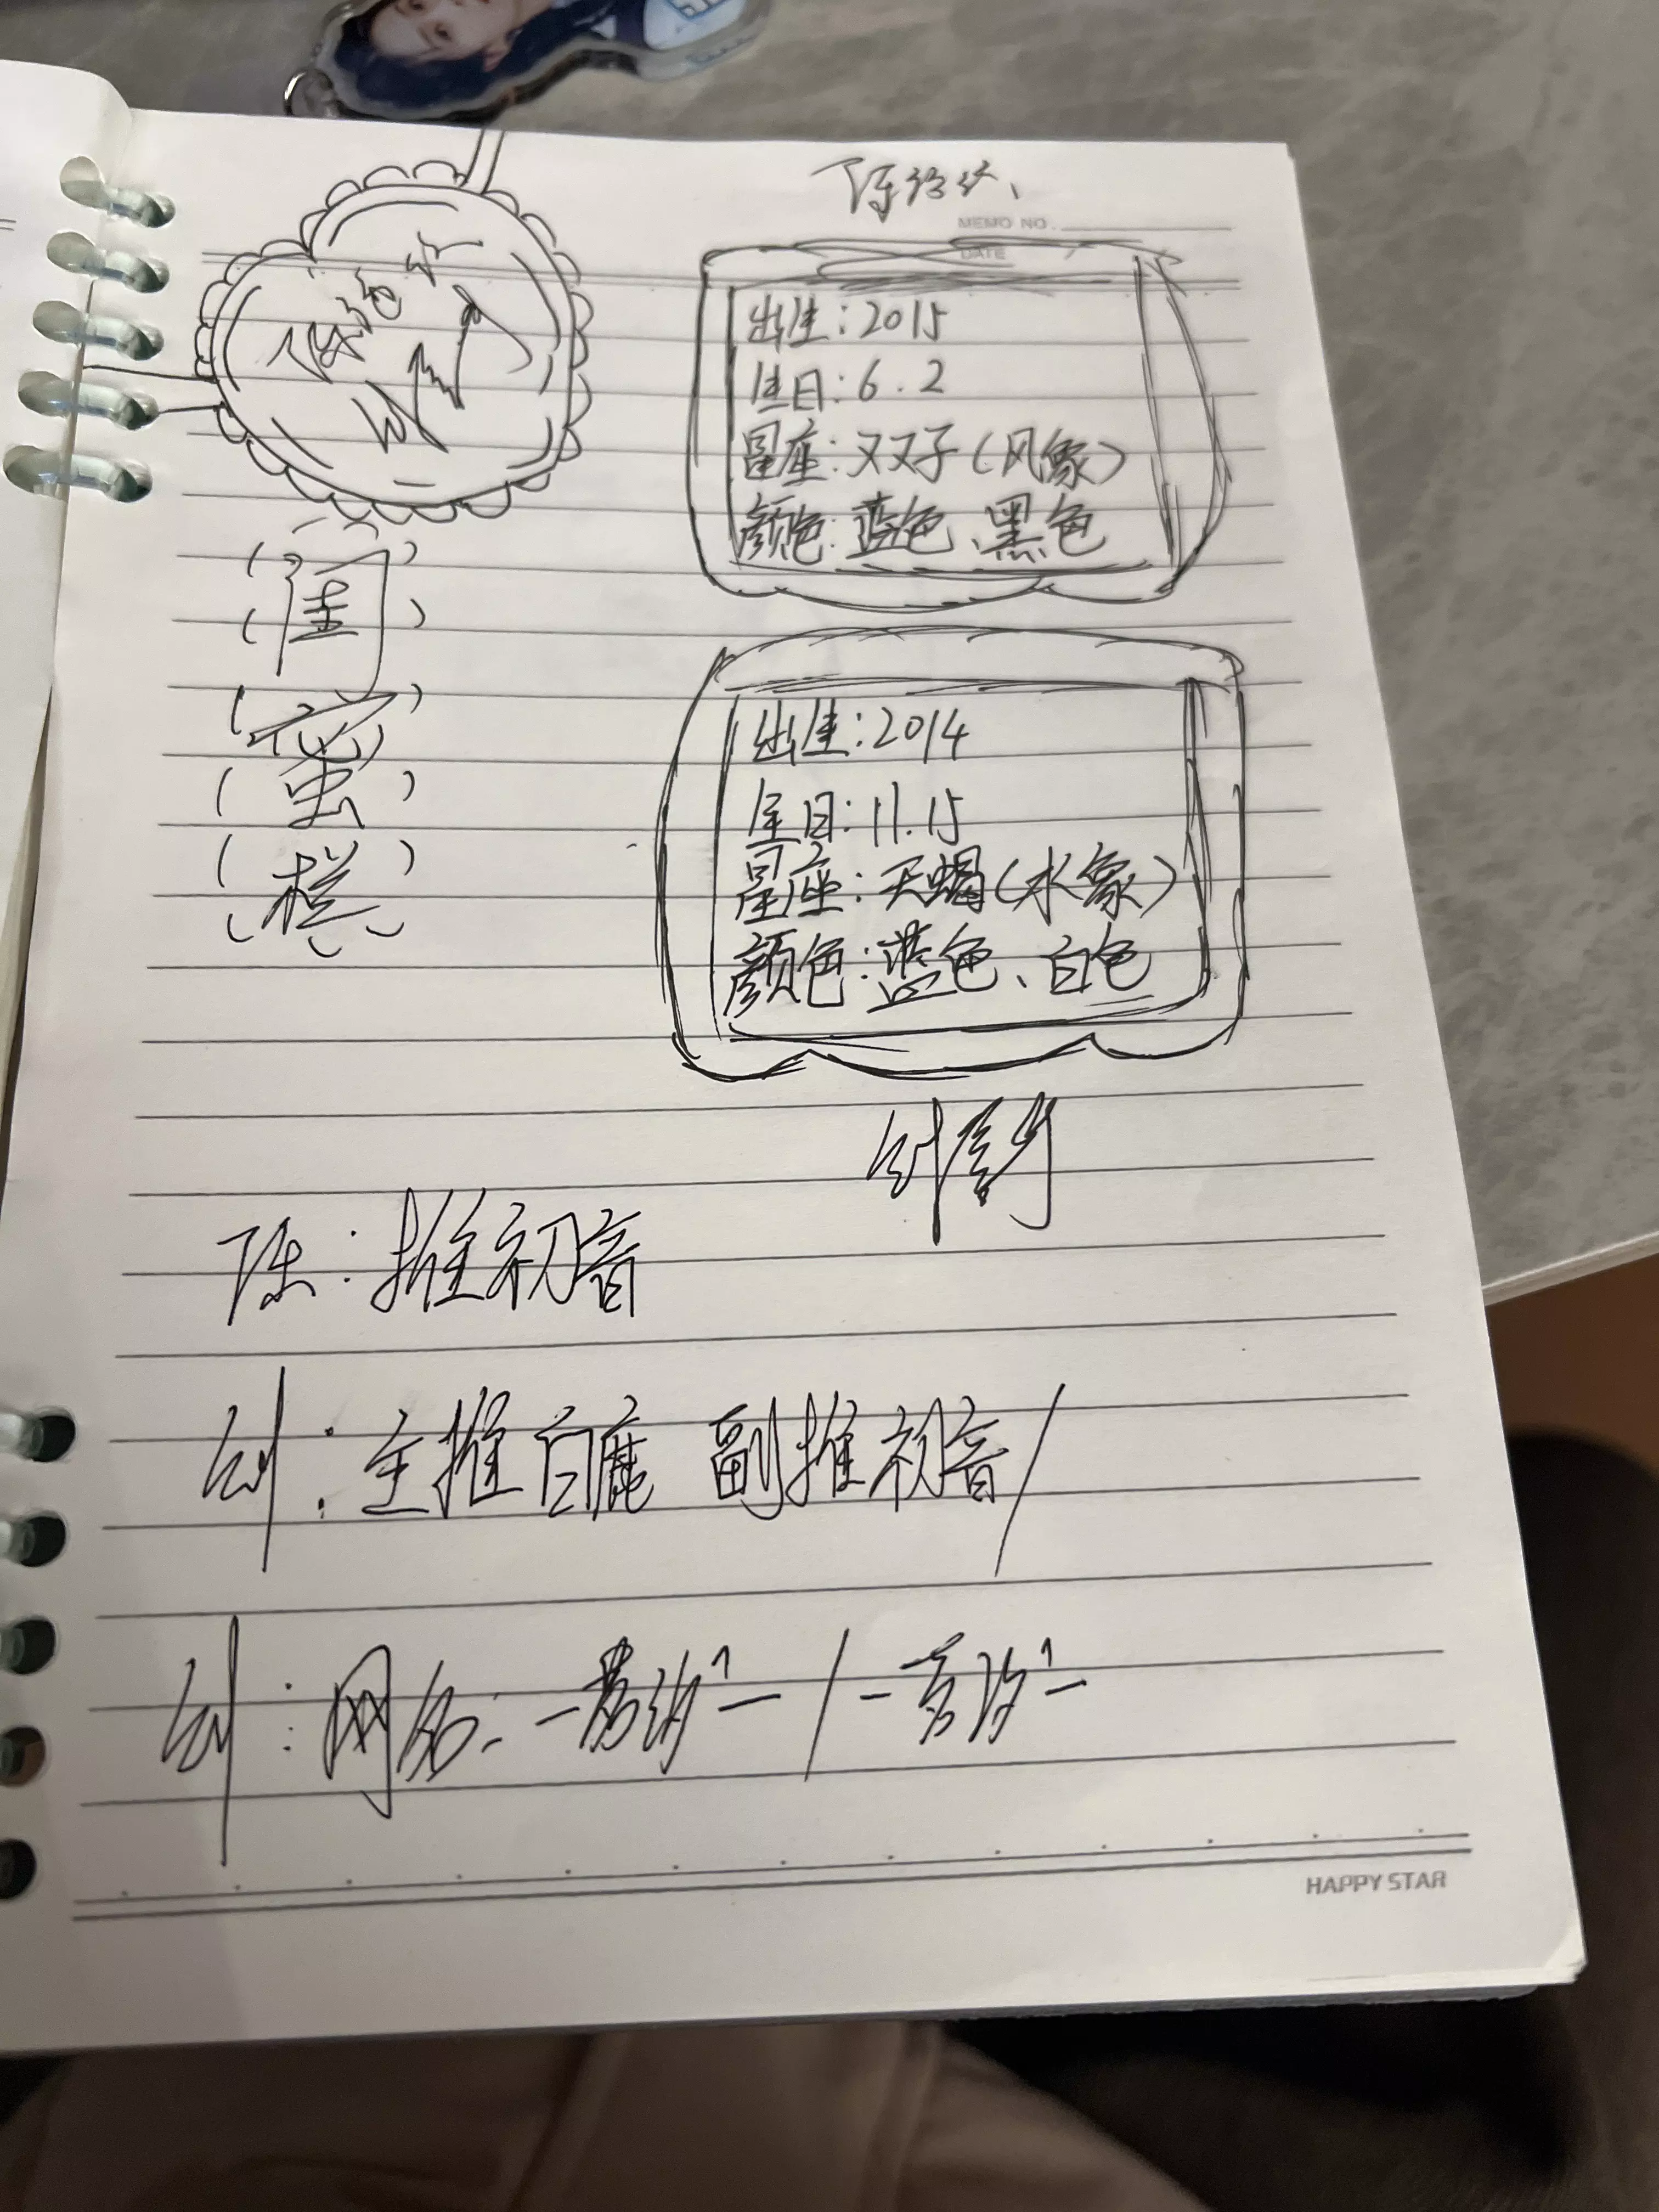 MEMO NO.
DATE
出生：2015
生日：6.2
星座：双子（风象）
颜色：蓝色、黑色
闺
蜜
栏
出生：2014
生日：11.15
星座：天蝎（水象）
颜色：蓝色、白色
陈：推初音
刘：主推白鹿 副推初音/
刘：网名：
HAPPY STAR